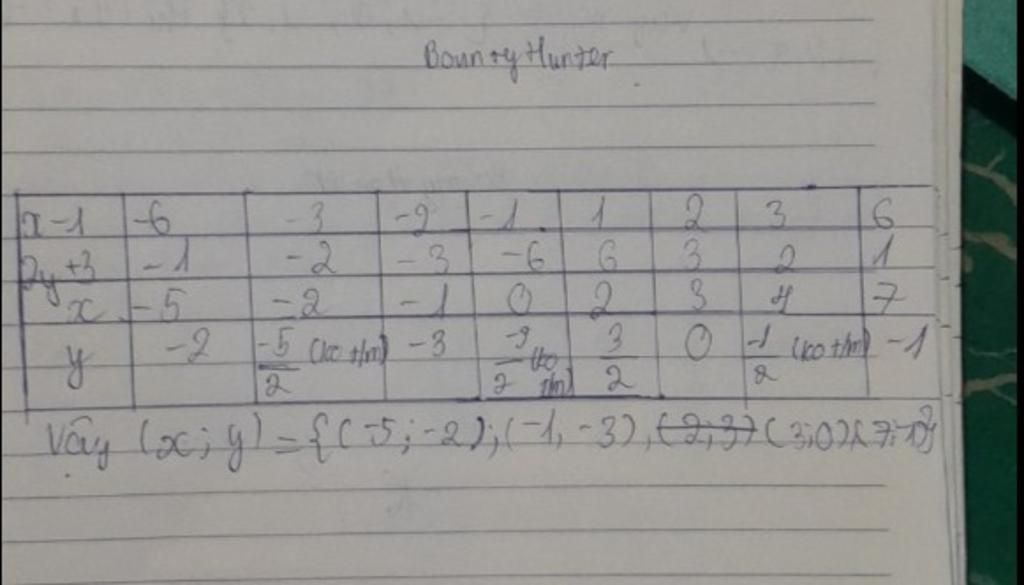 Bounty Hunter
x-1 -6 -3 -2 -1 1 2 3 6
2y+3 -1 -2 -3 -6 6 3 2 1
x -5 -2 -1 0 2 3 4 7
y -2 -5/2 (ko t/m) -3 -9/2 (ko t/m) 3/2 0 -1/2 (ko t/m) -1
Vậy (x; y) = {(-5; -2); (-1, -3), (2; 3) (3; 0) (7; -1)}